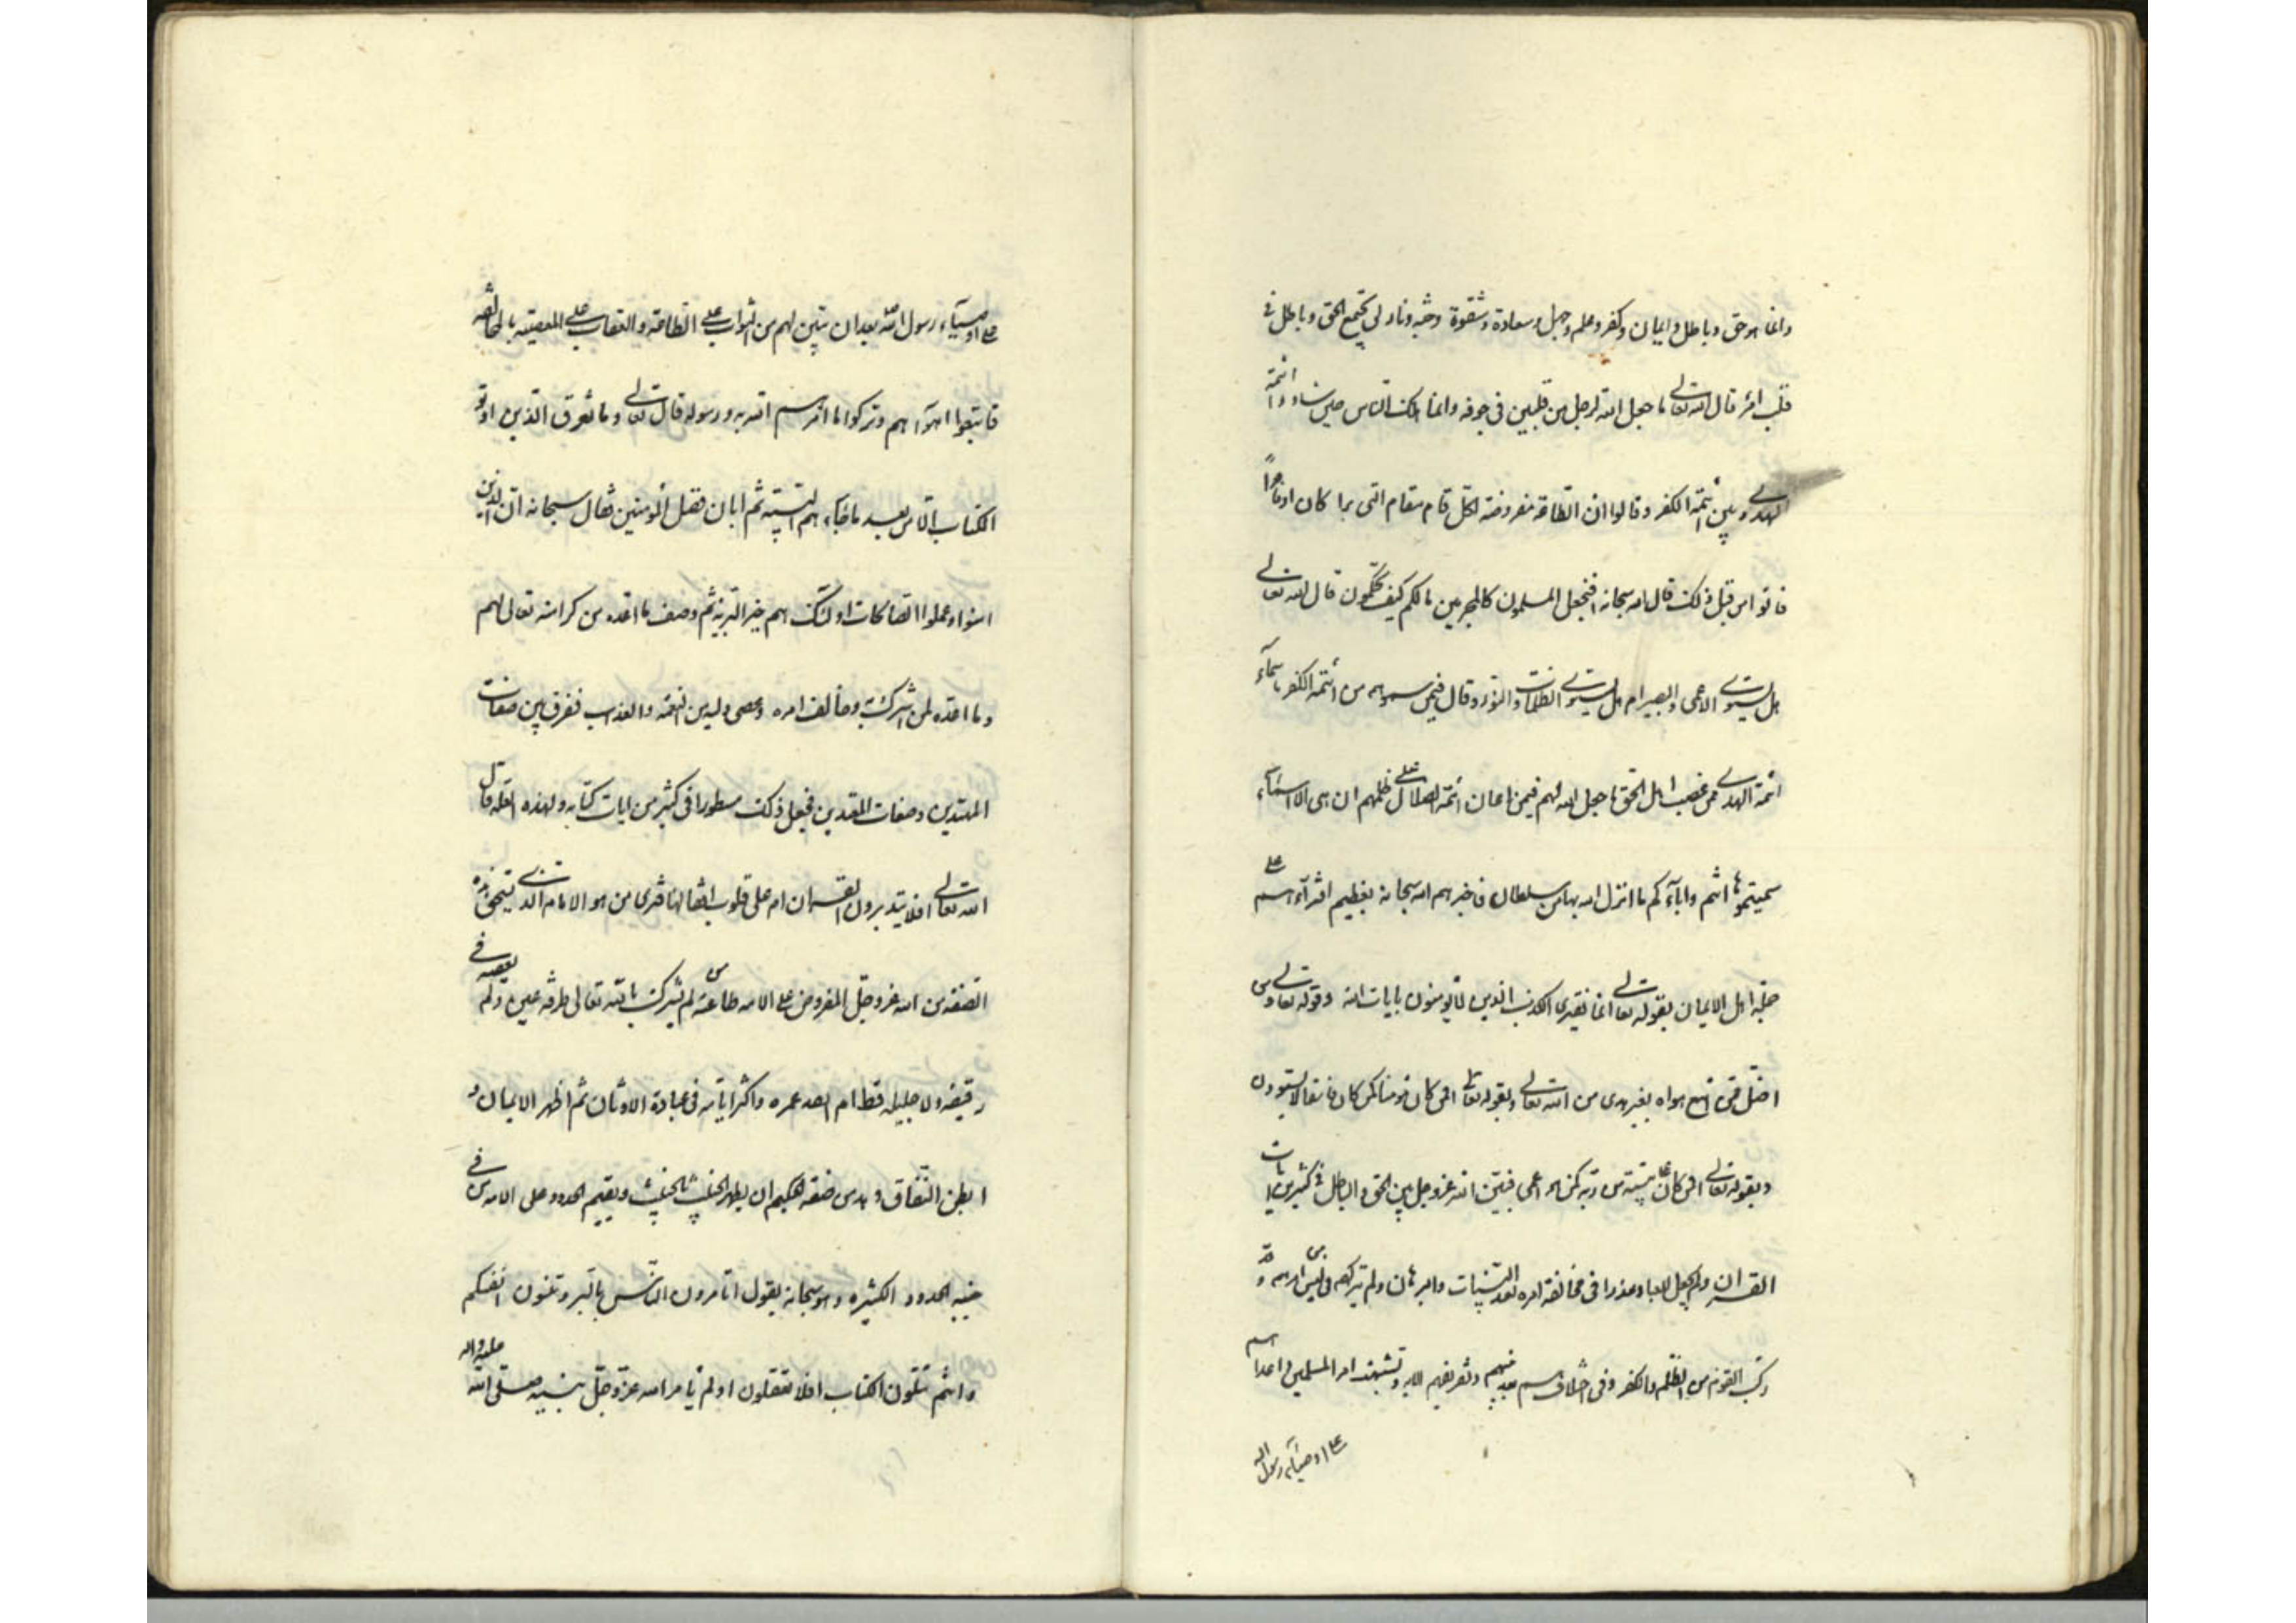 وانما هو حق وباطل وايمان وكفر وعلم وجهل وسعادة وشقوة وجنة ونار لن يجتمع الحق وباطل في
قلب امرء قال الله تعالى ما جعل الله لرجل من قلبين في جوفه وانما هلك الناس حين ساووا ائمة
الهدى وبين ائمة الكفر وقالوا ان الطاقة مفروضة لكل قام مقام النبي برا كان او فاجرا
فاتوا من قبل ذلك قال الله سبحانه افنجعل المسلمون كالمجرمين ما لكم كيف تحكمون قال الله تعالى
هل يستوى الاعمى والبصير ام هل يستوى الظلمات والنور وقال فيمن سموهم من ائمة الكفر باسمآء
ائمة الهدى ممن غصب اهل الحق ما جعل الله لهم فيمن اعان ائمة الضلال على ظلمهم ان هى الا اسمآء
سميتموها انتم واباؤكم ما انزل الله بها من سلطان فاخبرهم الله سبحانه بعظيم افترآءهم على
جملة اهل الايمان بقوله تعالى انما يفترى الكذب الذين لا يومنون بايات الله وقوله تعالى ومن
اضل ممن اتبع هواه بغير هدى من الله تعالى وبقوله تعالى افمن كان مومنا كمن كان فاسقا لا يستوون
وبقوله تعالى افمن كان على بينة من ربه كمن هو اعمى فبين الله عز وجل بين الحق والباطل في كثير من ايات
القران ولم يجعل للعباد عذرا في مخالفة امره بعد البينات والبرهان ولم يتركهم في لبس من امرهم و
ركب القوم من الظلم والكفر وفي اختلافهم بعد نبيهم وتفريقهم الامة وتشتيت امر المسلمين واعتداهم
على اوصيآء رسول الله
على اوصيآء رسول الله بعد ان تبين لهم من الثواب على الطاعة والعقاب على المعصية بالمخالفة
فاتبعوا اهوآءهم وتركوا ما امرهم الله به ورسوله قال تعالى وما تفرق الذين اوتو
الكتاب الا من بعد ما جآءهم البينة ثم ابان فضل المومنين فقال سبحانه ان الذين
امنوا وعملوا الصالحات اولئك هم خير البرية ثم وصف ما اعده من كرامته تعالى لهم
وما اعده لمن اشرك به وخالف امره وعصى وليه من النقمة والعذاب ففرق بين صفات
المهتدين وصفات المعتدين فجعل ذلك مسطورا في كثير من ايات كتابه ولهذه العلة قال
الله تعالى افلا يتدبرون القران ام على قلوب اقفالها فترى من هو الامام الذى يستحق هذه
الصفة من الله عز وجل المفروض على الامة طاعته من لم يشرك بالله تعالى طرفة عين ولم يعصه في
دقيقه ولا جليله قط ام من انفد عمره واكثر ايامه في عبادة الاوثان ثم اظهر الايمان و
ابطن النفاق وهل من صفة الحكيم ان يطهر الخبيث بالخبيث ويقيم الحدود على الامة من في
جنبه الحدود الكثيره وهو سبحانه يقول اتامرون الناس بالبر وتنسون انفسكم
وانتم تتلون الكتاب افلا تعقلون اولم يامر الله عز وجل نبيه صلى الله عليه واله